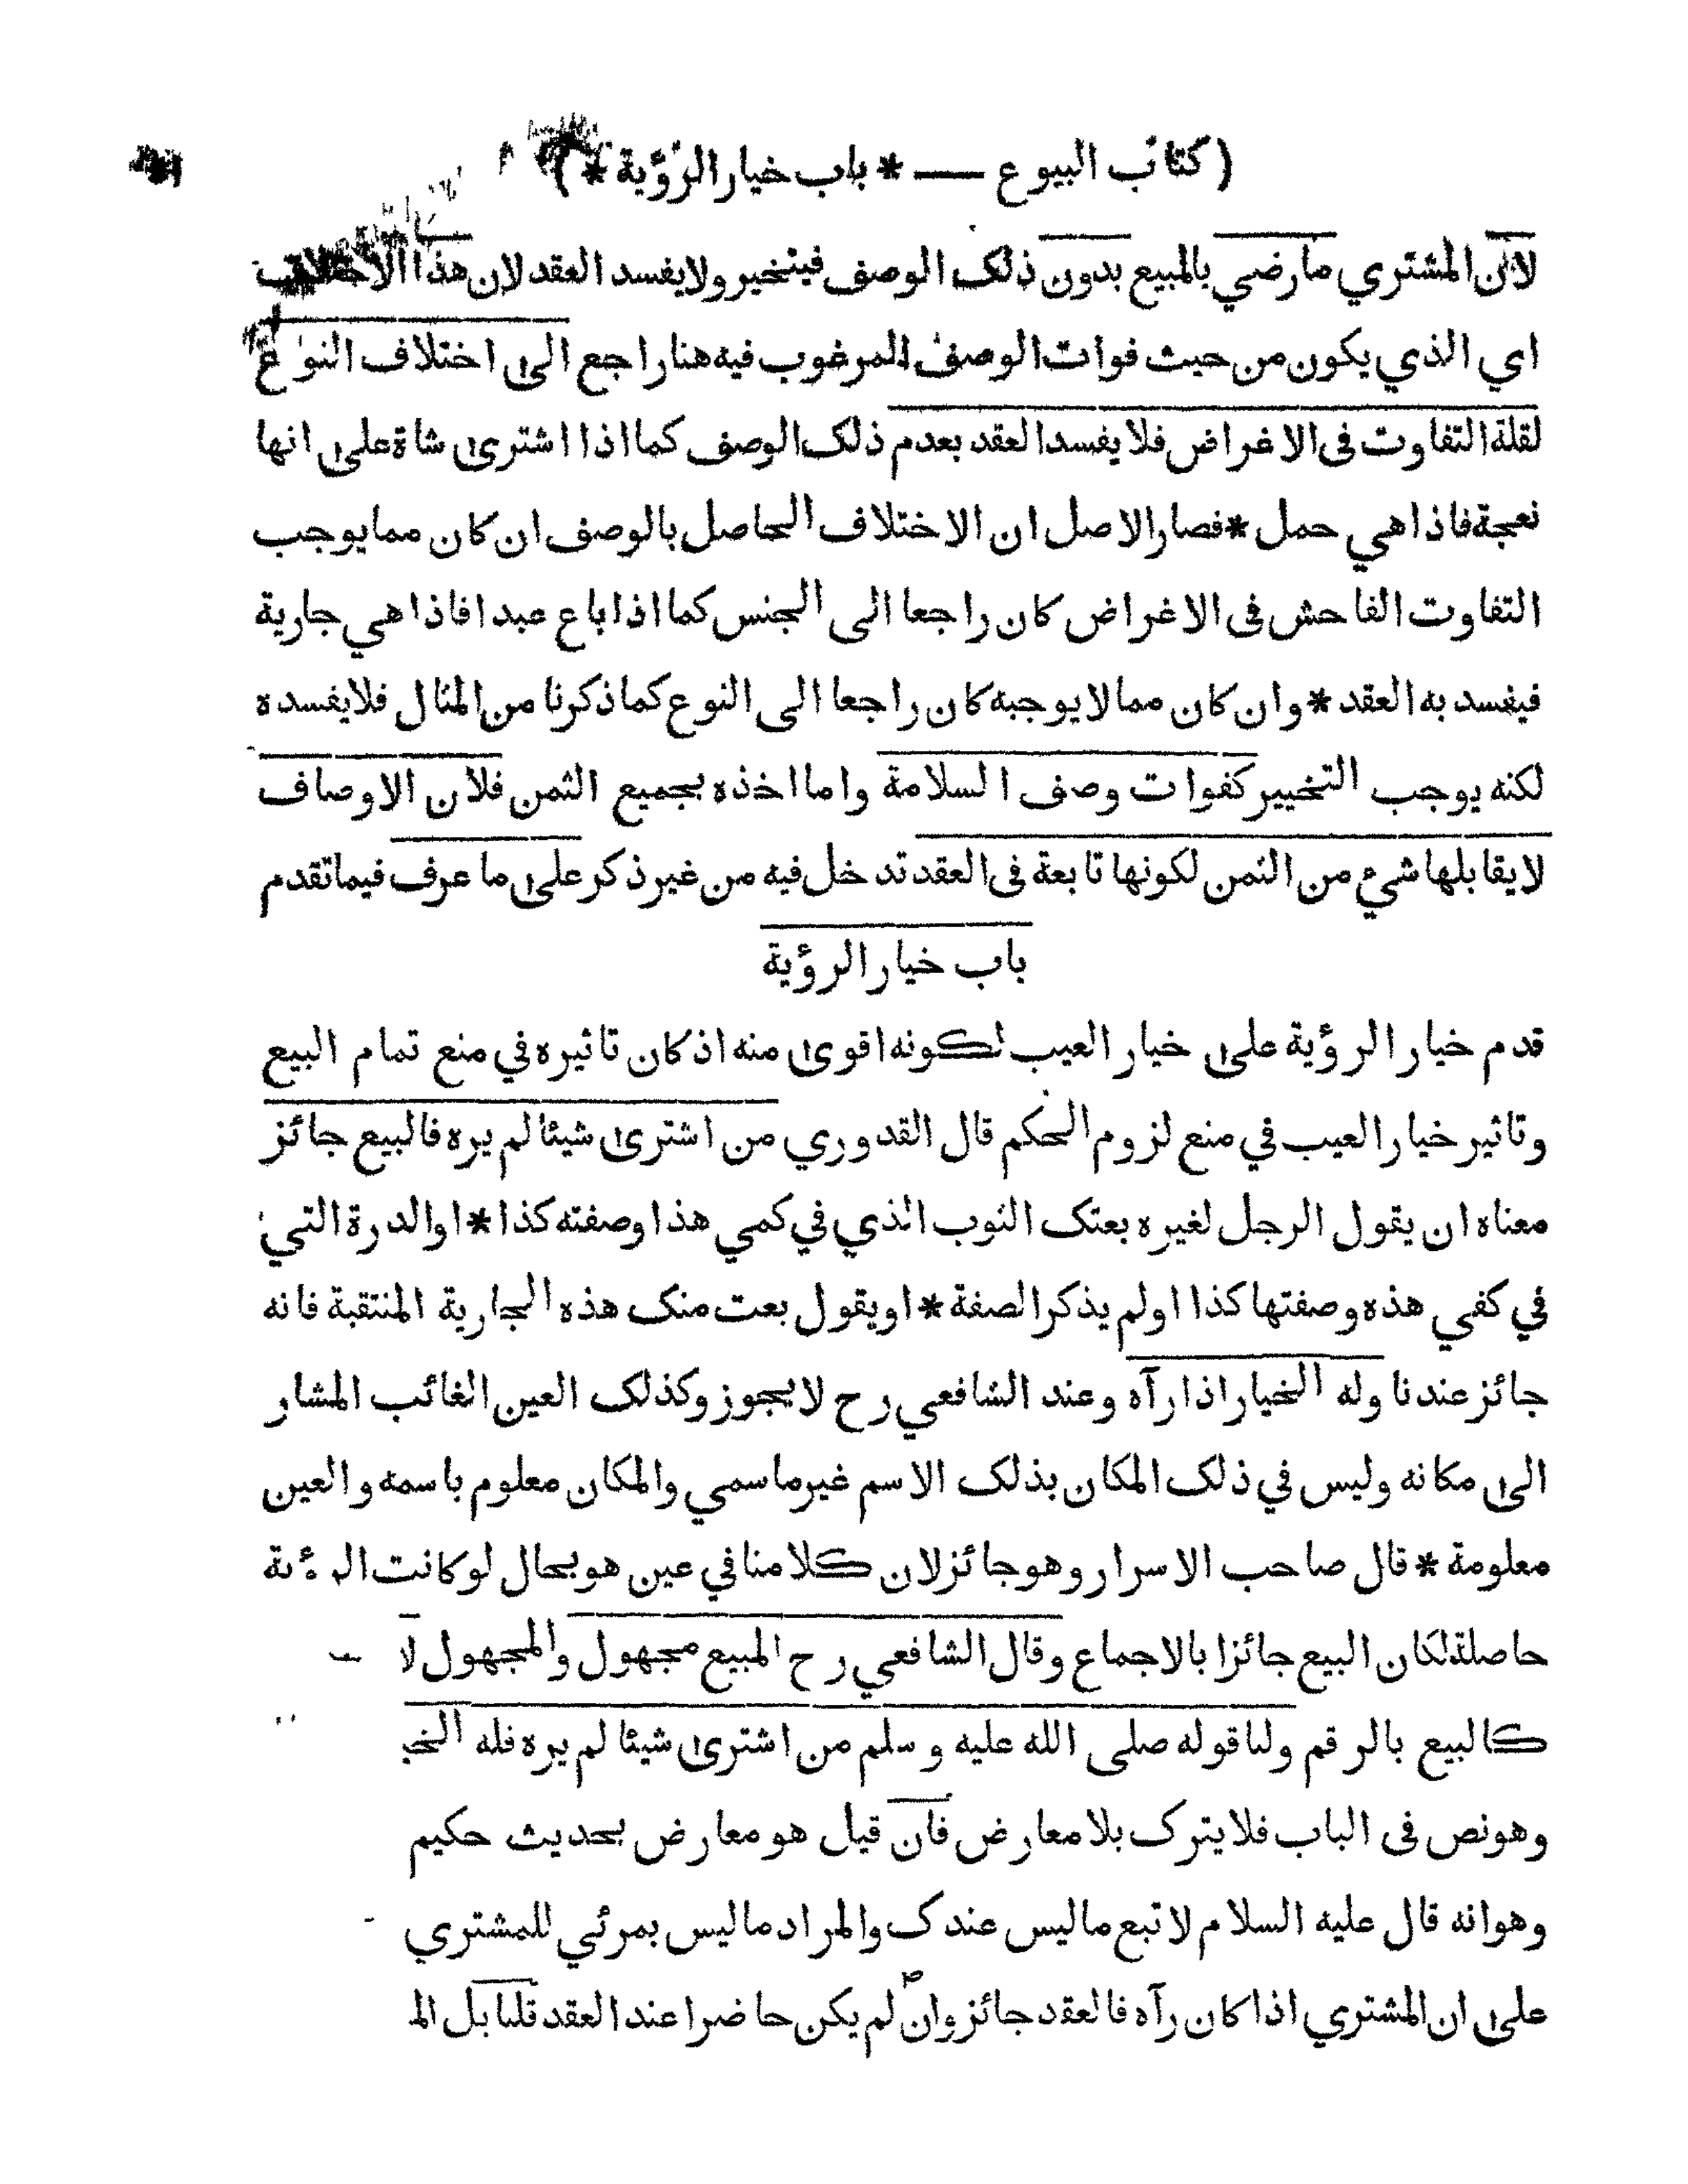 ( كتاب البيوع — * باب خيار الرؤية * )
لان المشتري ما رضي بالمبيع بدون ذلك الوصف فيتخير ولا يفسد العقد لان هذا الاختلاف
اي الذي يكون من حيث فوات الوصف المرغوب فيه هنا راجع الى اختلاف النوع
لقلة التفاوت فى الاغراض فلا يفسد العقد بعدم ذلك الوصف كما اذا اشترى شاة على انها
نعجة فاذا هي حمل * فصار الاصل ان الاختلاف الحاصل بالوصف ان كان مما يوجب
التفاوت الفاحش فى الاغراض كان راجعا الى الجنس كما اذا باع عبدا فاذا هي جارية
فيفسد به العقد * وان كان مما لا يوجبه كان راجعا الى النوع كما ذكرنا من المثال فلا يفسده
لكنه يوجب التخيير كفوات وصف السلامة واما اخذه بجميع الثمن فلان الاوصاف
لا يقابلها شيء من الثمن لكونها تابعة فى العقد تدخل فيه من غير ذكر على ما عرف فيما تقدم
باب خيار الرؤية
قدم خيار الرؤية على خيار العيب لكونه اقوى منه اذ كان تاثيره في منع تمام البيع
وتاثير خيار العيب في منع لزوم الحكم قال القدوري من اشترى شيئا لم يره فالبيع جائز
معناه ان يقول الرجل لغيره بعتك الثوب الذي في كمي هذا وصفته كذا * او الدرة التي
في كفي هذه وصفتها كذا او لم يذكر الصفة * او يقول بعت منك هذه الجارية المنتقبة فانه
جائز عندنا وله الخيار اذا رآه وعند الشافعي رح لا يجوز وكذلك العين الغائب المشار
الى مكانه وليس في ذلك المكان بذلك الاسم غير ما سمي والمكان معلوم باسمه والعين
معلومة * قال صاحب الاسرار وهو جائز لان كلامنا في عين هو بحال لو كانت الرؤية
حاصلة لكان البيع جائزا بالاجماع وقال الشافعي رح المبيع مجهول والمجهول لا
كالبيع بالرقم ولنا قوله صلى الله عليه وسلم من اشترى شيئا لم يره فله
وهو نص فى الباب فلا يترك بلا معارض فان قيل هو معارض بحديث حكيم
وهو انه قال عليه السلام لا تبع ما ليس عندك والمراد ما ليس بمرئي للمشتري
على ان المشتري اذا كان رآه فالعقد جائز وان لم يكن حاضرا عند العقد قلنا بل